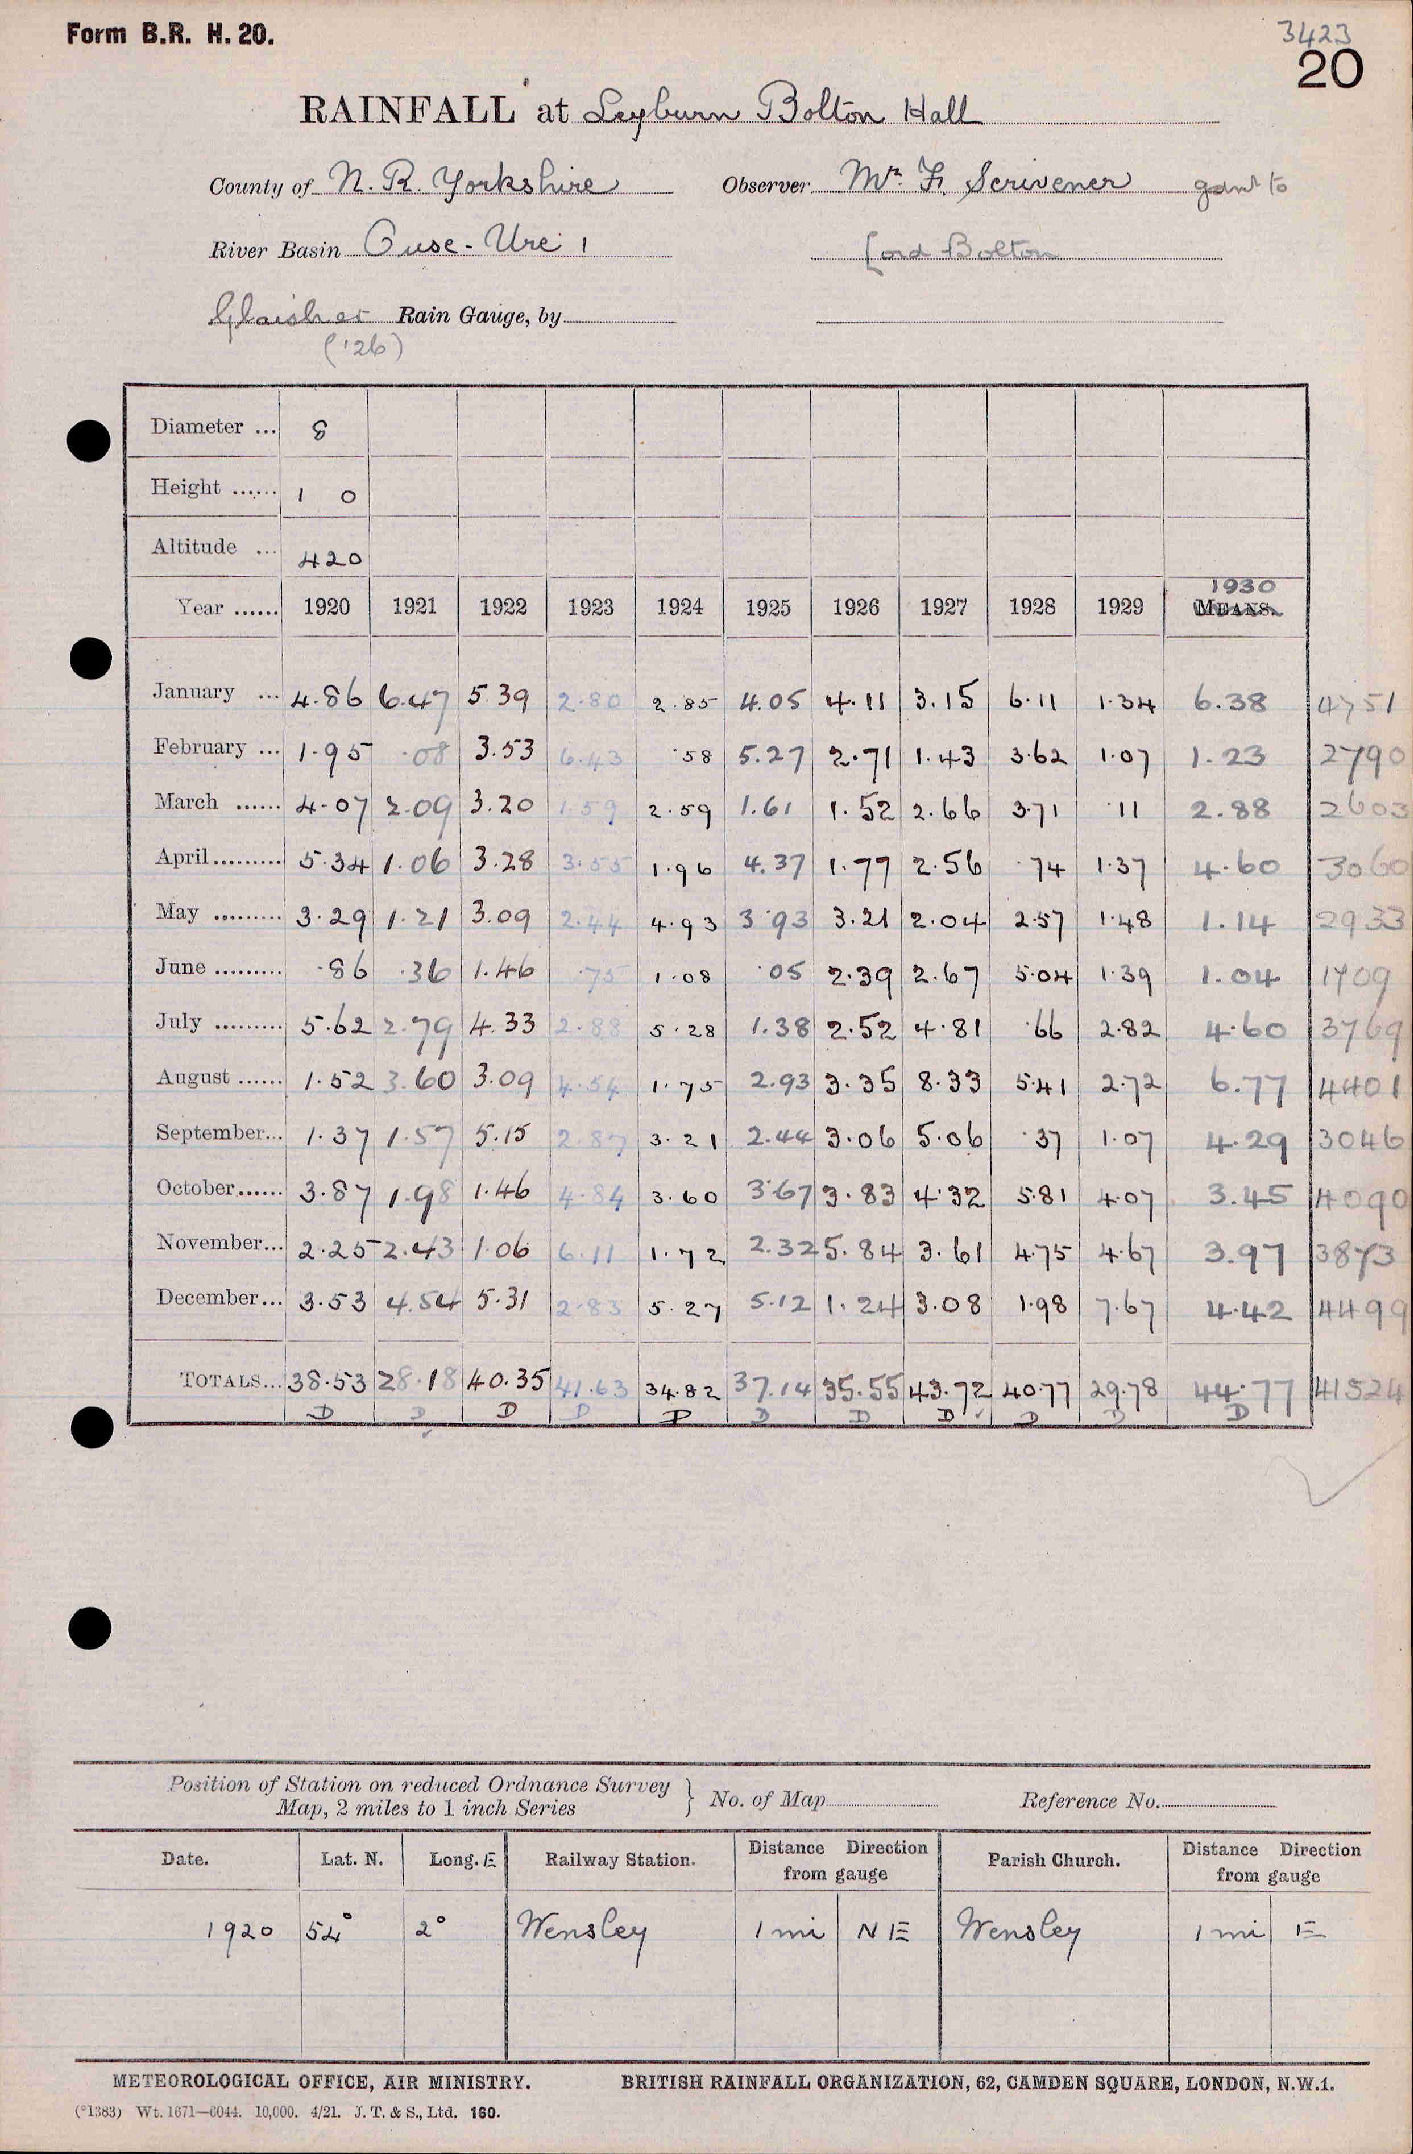 Form B.R. H. 20.
3423
20
RAINFALL at Leyburn Bolton Hall
County of N. R. Yorkshire Observer Mr. F. Scrivener gdnr to
River Basin Ouse - Ure 1 Lord Bolton
Glaisher Rain Gauge, by
('26)
Diameter ... 8
Height ...... 1 0
Altitude ... 420
1930
Year ...... 1920 1921 1922 1923 1924 1925 1926 1927 1928 1929 MEANS.
January ... 4.86 6.47 5.39 2.80 2.85 4.05 4.11 3.15 6.11 1.34 6.38 4751
February ... 1.95 .08 3.53 6.43 .58 5.27 2.71 1.43 3.62 1.07 1.23 2790
March ...... 4.07 2.09 3.20 1.59 2.59 1.61 1.52 2.66 3.71 .11 2.88 2603
April......... 5.34 1.06 3.28 3.55 1.96 4.37 1.77 2.56 .74 1.37 4.60 3060
May ......... 3.29 1.21 3.09 2.44 4.93 3.93 3.21 2.04 2.57 1.48 1.14 2933
June ......... .86 .36 1.46 .75 1.08 .05 2.39 2.67 5.04 1.39 1.04 1709
July ......... 5.62 2.79 4.33 2.88 5.28 1.38 2.52 4.81 .66 2.82 4.60 3769
August ...... 1.52 3.60 3.09 4.54 1.75 2.93 3.35 8.33 5.41 2.72 6.77 4401
September... 1.37 1.57 5.15 2.87 3.21 2.44 3.06 5.06 .37 1.07 4.29 3046
October...... 3.87 1.98 1.46 4.84 3.60 3.67 3.83 4.32 5.81 4.07 3.45 4090
November... 2.25 2.43 1.06 6.11 1.72 2.32 5.84 3.61 4.75 4.67 3.97 3873
December... 3.53 4.54 5.31 2.83 5.27 5.12 1.24 3.08 1.98 7.67 4.42 4499
TOTALS... 38.53 28.18 40.35 41.63 34.82 37.14 35.55 43.72 40.77 29.78 44.77 41524
D D D D D D D D D D D
Position of Station on reduced Ordnance Survey
Map, 2 miles to 1 inch Series } No. of Map Reference No.
Date. Lat. N. Long. E Railway Station. Distance Direction from gauge Parish Church. Distance Direction from gauge
1920 54° 2° Wensley 1 mi NE Wensley 1 mi E
METEOROLOGICAL OFFICE, AIR MINISTRY. BRITISH RAINFALL ORGANIZATION, 62, CAMDEN SQUARE, LONDON, N.W.1.
(*1383) Wt. 1671—6044. 10,000. 4/21. J. T. & S., Ltd. 160.